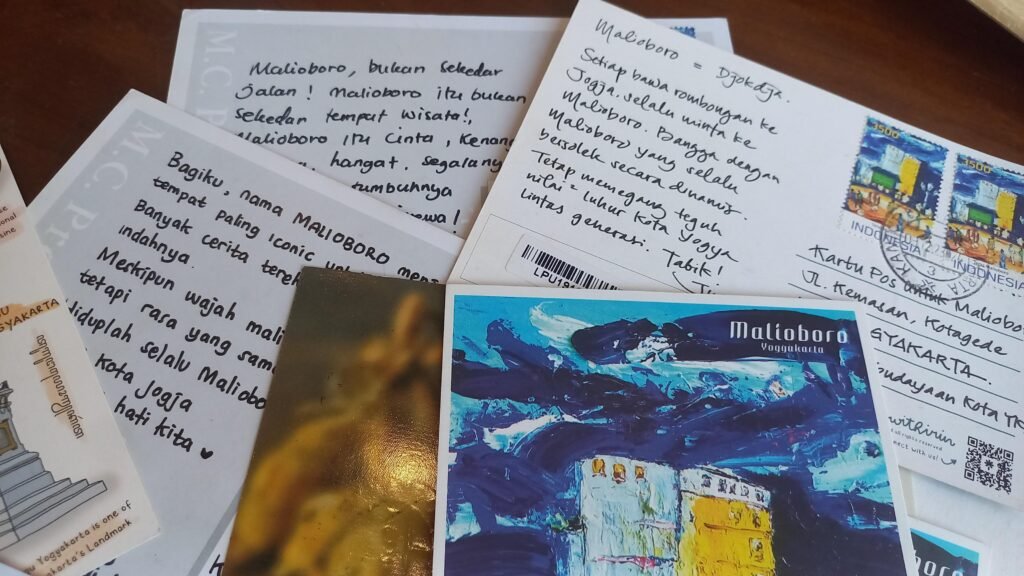 M.C. P
Malioboro, bukan sekedar
jalan! Malioboro itu bukan
sekedar tempat wisata!,
Malioboro itu cinta, Kenang
hangat. segalany
tumbuhnya
M.C. Pr
Bagiku, nama MALIOBORO
tempat paling iconic
Banyak cerita
indahnya.
Meskipun wajah mali
tetapi rasa yang sama
Hiduplah selalu Maliobo
Kota Jogja
hati kita
Malioboro = Djokdja.
Setiap bawa rombongan ke
Jogja. selalu minta ke
Malioboro. Bangga dengan
Malioboro yang selalu
bersolek secara dinamis.
Tetap memegang teguh
nilai = luhur kota Yogya
lintas generasi. Tabik!
1500
1500
INDONESIA
INDONESIA
Kartu Pos untuk Maliobo
Jl. Kemasan, Kotagede
GYAKARTA.
budayaan Kota
Malioboro
Yogyakarta
GYAKARTA
Yogyakarta is one of
akarta's Landmark